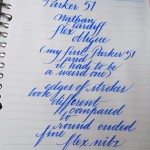 Parker 51
Nathan Tardiff
flex
oblique
(my first Parker 51
and
it had to be
a weird one)
edges of strokes
look
different
compared
to
round ended
fine
flex nibs